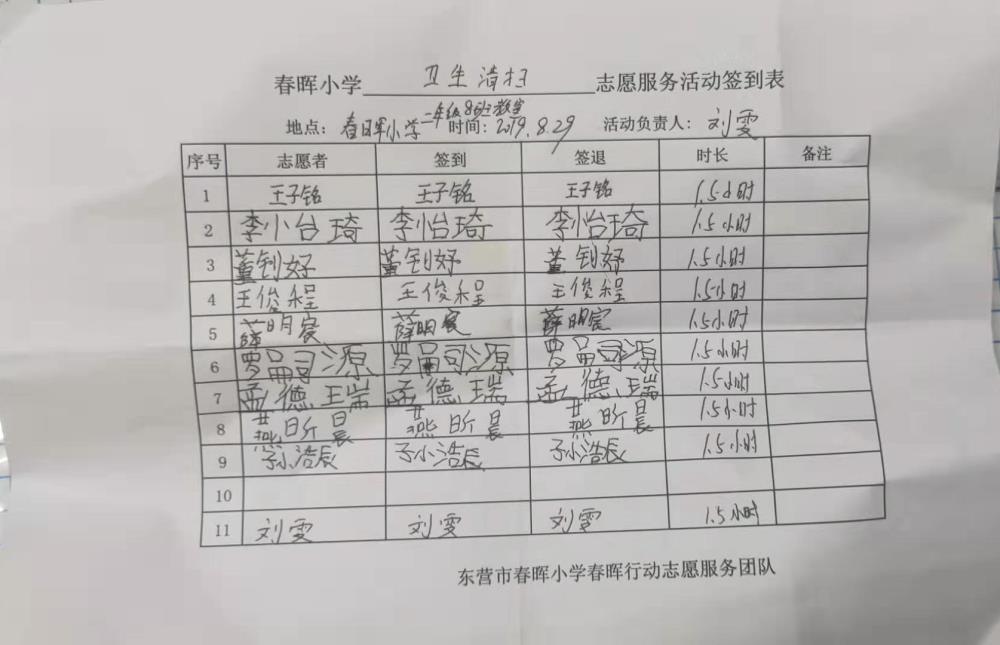 春晖小学 卫生清扫 志愿服务活动签到表
地点：春晖小学二年级8班教室 时间：2019.8.29 活动负责人：刘雯
序号 志愿者 签到 签退 时长 备注
1 王子铭 王子铭 王子铭 1.5小时
2 李怡琦 李怡琦 李怡琦 1.5小时
3 董钊妤 董钊妤 董钊妤 1.5小时
4 王俊程 王俊程 王俊程 1.5小时
5 薛明宸 薛明宸 薛明宸 1.5小时
6 罗 源 罗 源 罗 源 1.5小时
7 孟德瑞 孟德瑞 孟德瑞 1.5小时
8 燕昕晨 燕昕晨 燕昕晨 1.5小时
9 孙浩辰 孙浩辰 孙浩辰 1.5小时
10
11 刘雯 刘雯 刘雯 1.5小时
东营市春晖小学春晖行动志愿服务团队